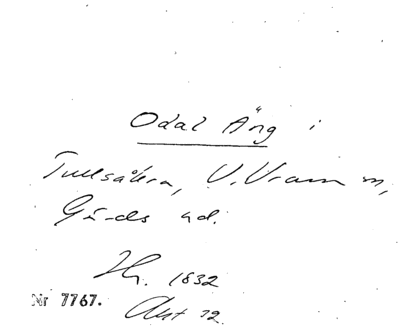 Odal Äng i
Tullsåkra, V. Vram sn,
Gärds hd.
Hr. 1832
Nr 7767.
Akt 12.